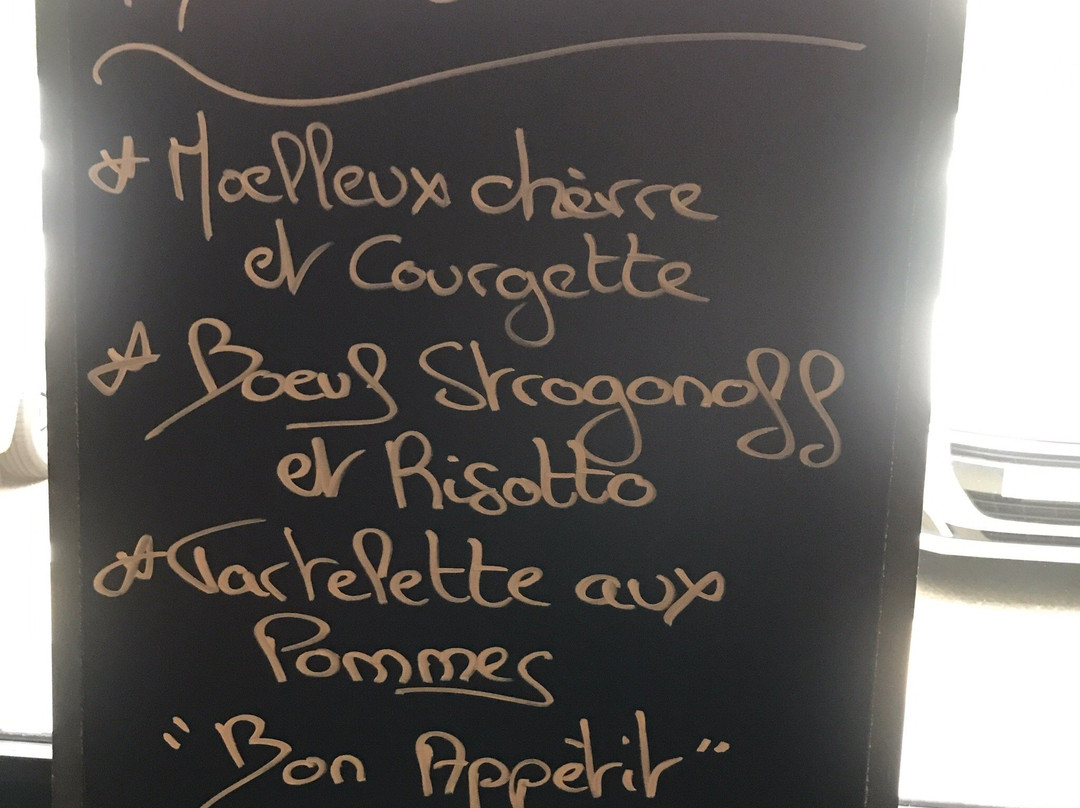 * Moelleux chèvre
et Courgette
* Boeuf Strogonoff
et Risotto
* Tartelette aux
Pommes
"Bon Appètit"